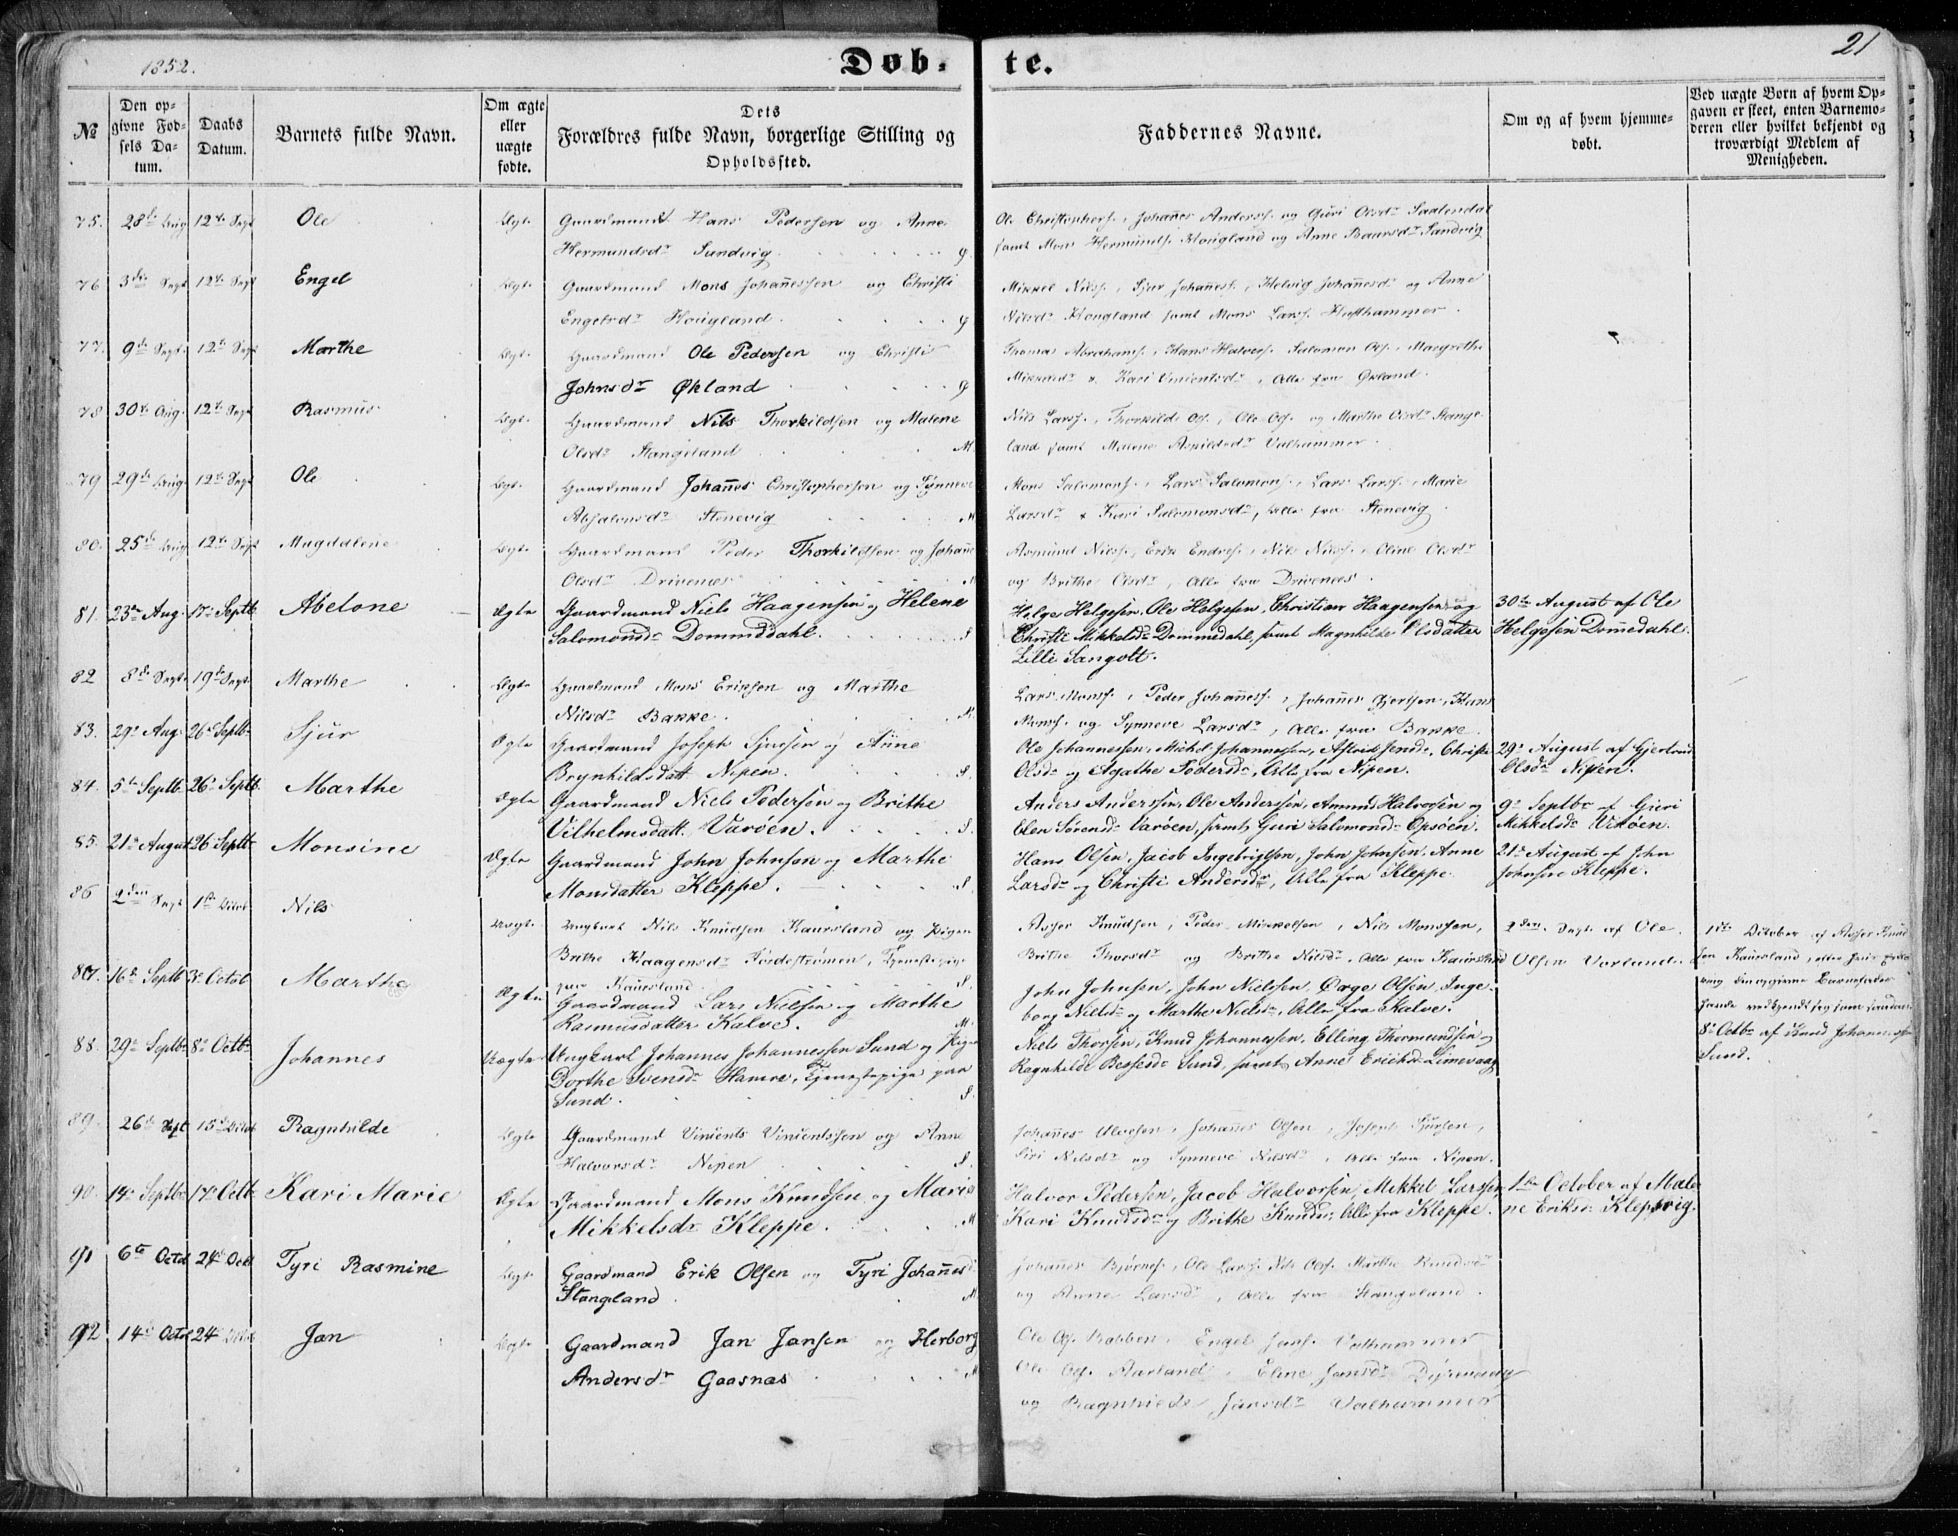 1852.
Døb-
te.
21
№
Den op-
givne Fød-
sels Da-
tum.
Daabs
Datum.
Barnets fulde Navn.
Om ægte
eller
uægte
fødte.
Dets
Forældres fulde Navn, borgerlige Stilling og
Opholdssted.
Faddernes Navne.
Om og af hvem hjemme-
døbt.
Ved uægte Børn af hvem Op-
gaven er skeet, enten Barnemo-
deren eller hvilket bekjendt og
troværdigt Medlem af
Menigheden.
75. 28de Aug 12te Sept Ole Ægte Gaardmand Hans Pedersen og Anne
Hermundsdr Sundvig
Ole Christophers., Johañes Anderss. og Guri Olsdr
samt Mons Hermunds. Hougland og Anne Baarsdr Sandvig
76 3die Sept 12te Sept Engel Ægte Gaardmand Mons Johañessen og Christi
Engelsdr Hougland
Mikkel Nilss., Sjur Johañess., Helvig Johañesd og Anne
Nilsdr Hougland samt Mons Larss. Hufthammer
77. 9de Sept. 12te Sept Marthe Ægte Gaardmand Ole Pedersen og Christi
Johnsdr Økland
Thomas Abrahams., Hans Halvors. Salomon Ols., Margrethe
Mikkelsdr & Kari Vincentsdr, Alle fra Økland
78 30te Aug. 12te Sept Rasmus Ægte Gaardmand Nils Thorkildsen og Malene
Olsdr Stangeland M.
Nils Larss., Thorkild Ols., Ole Ols. og Marthe Olsdr Stange-
land samt Malene Valhammer
79 29de Aug. 12te Sept Ole Ægte Gaardmand Johañes Christophersen og Synneve
Absalonsdr Stenevig M
Mons Salomons., Lars Salomons., Lars Larss., Marie
Larsdr & Kari Salomonsdr, Alle fra Stenevig
80. 25de Aug 12te Sept Magdalene Ægte Gaardmand Peder Thorkildsen og Johañe
Olsdr Drivenes
Asmund Nilss., Erik Endres., Nils Nilss., Oline Olsdr
og Brithe Olsdr, Alle fra Drivenes
81. 23de Aug. 17de Septb Abelone Ægte Gaardmand Niels Haagensen og Helene
Salomonsdr Dommedahl. S
Helge Helgesen, Ole Helgesen, Christian Haagensen og
Christi Mikkelsdr Dommedahl, samt Magnhilde Olsdatter
Lille Sangolt.
30te August af Ole
Helgesen Domedahl.
82 8de Sept. 19de Sept Marthe Ægte Gaardmand Mons Eriksen og Marthe
Nilsdr Bakke
Lars Monss., Peder Johañess., Johañes Gjertsen, Hans
Monss. og Synneve Larsdr, Alle fra Bakke
83. 29de Aug. 26de Septb Sjur Ægte Gaardmand Joseph Sjursen og Anne
Brynhildsdatt Nipen. S.
Ole Johannessen, Mikkel Johannessen, Christi
Olsdr og Agathe Pedersdr, Alle fra Nipen.
29de August af Gjertrud
Olsdr Nipen.
84. 5te Septb. 26de Septb. Marthe Ægte Gaardmand Niels Pedersen og Brithe
Vilhelmsdatt. Varöen. S.
Anders Anderssen, Ole Anderssen, Amund Halvorsen og
Elen Sørensdr Varöen, samt Guri Salomonsdr Opsöen.
9de Septbr af Guri
Mikkelsdr Varöen.
85. 21de August 26 Septb Monsine Ægte Gaardmand John Johnsen og Marthe
Monsdatter Kleppe. S.
Hans Olsen, Jacob Ingebrigtsen, John Johnsen, Anne
Larsdr og Christi Andersdr, Alle fra Kleppe.
21de August af John
Johnsen Kleppe.
86 2den Sept 1ste Octob Nils Uægt. Ungkarl Nils Knudsen Kaursland og Pigen
Brithe Haagensdr Tjenestepige
paa Kaursland. S.
Asser Knudsen, Peder Mikkelsen, Nils Monssen,
Brithe Thorsdr og Brithe Nilsdr. Alle fra Kaursland
2den Sept af Ole
Olsen Vorland.
1ste October af Asser Knud-
sen Kaursland
87. 16de Septb 3de Octob Marthe Ægte Gaardmand Lars Nielsen og Marthe
Rasmusdatter Kalve. M.
John Johnsen, John Nielsen, Börge Olsen, Inge-
borg Nielsdr og Marthe Nielsdr, Alle fra Kalve.
88. 29de Septbr 8de Octb. Johannes Uægte Ungkarl Johannes Johannessen Sund og Pigen
Dorthe Svensdr Hamre, Tjenestepige paa
Sund. S.
Niels Thorsen, Knud Johannessen, Elling Thormundsen og
Ragnhilde Bessesdr Sund, samt Anne Eriksdr Limevaag
8de Octbr af Knud Johannessen
Sund.
89. 26de Sept 15de Octob Ragnhilde Ægte Gaardmand Vincents Vincentssen og Anne
Halvorsdr Nipen S.
Johañes Ulvesen, Johañes Olsen, Joseph Sjursen,
Siri Nilsdr og Synneve Nilsdr, Alle fra Nipen.
90. 14de Septbr 17de Octb. Kari Marie Ægte Gaardmand Mons Knudsen og Marie
Mikkelsdr Kleppe. M
Halvor Pedersen, Jacob Halvorsen, Mikkel Larssen
Kari Knudsdr og Brithe Knudsdr, Alle fra Kleppe.
1ste October af Male-
ne Eriksdr Kleppevig.
91 6te Octob 24de Octb Tyri Rasmine Ægte Gaardmand Erik Olsen og Tyri Johañesd
Stangeland M.
Johañes Bjørnes., Ole Larss. Nils Ols. Marthe Knudsdr
og Anne Larsdr, Alle fra Stangeland
92 14de Octob 24de Octob Jan Ægte Gaardmand Jan Jansen og Herborg
Andersdr Gaasnæs M
Ole Ols. Robben, Engel Jans. Valhammer
Ole Ols. Aarland, Eline Jansdr Dyrevaag
og Ragnhilde Jansdr Valhammer